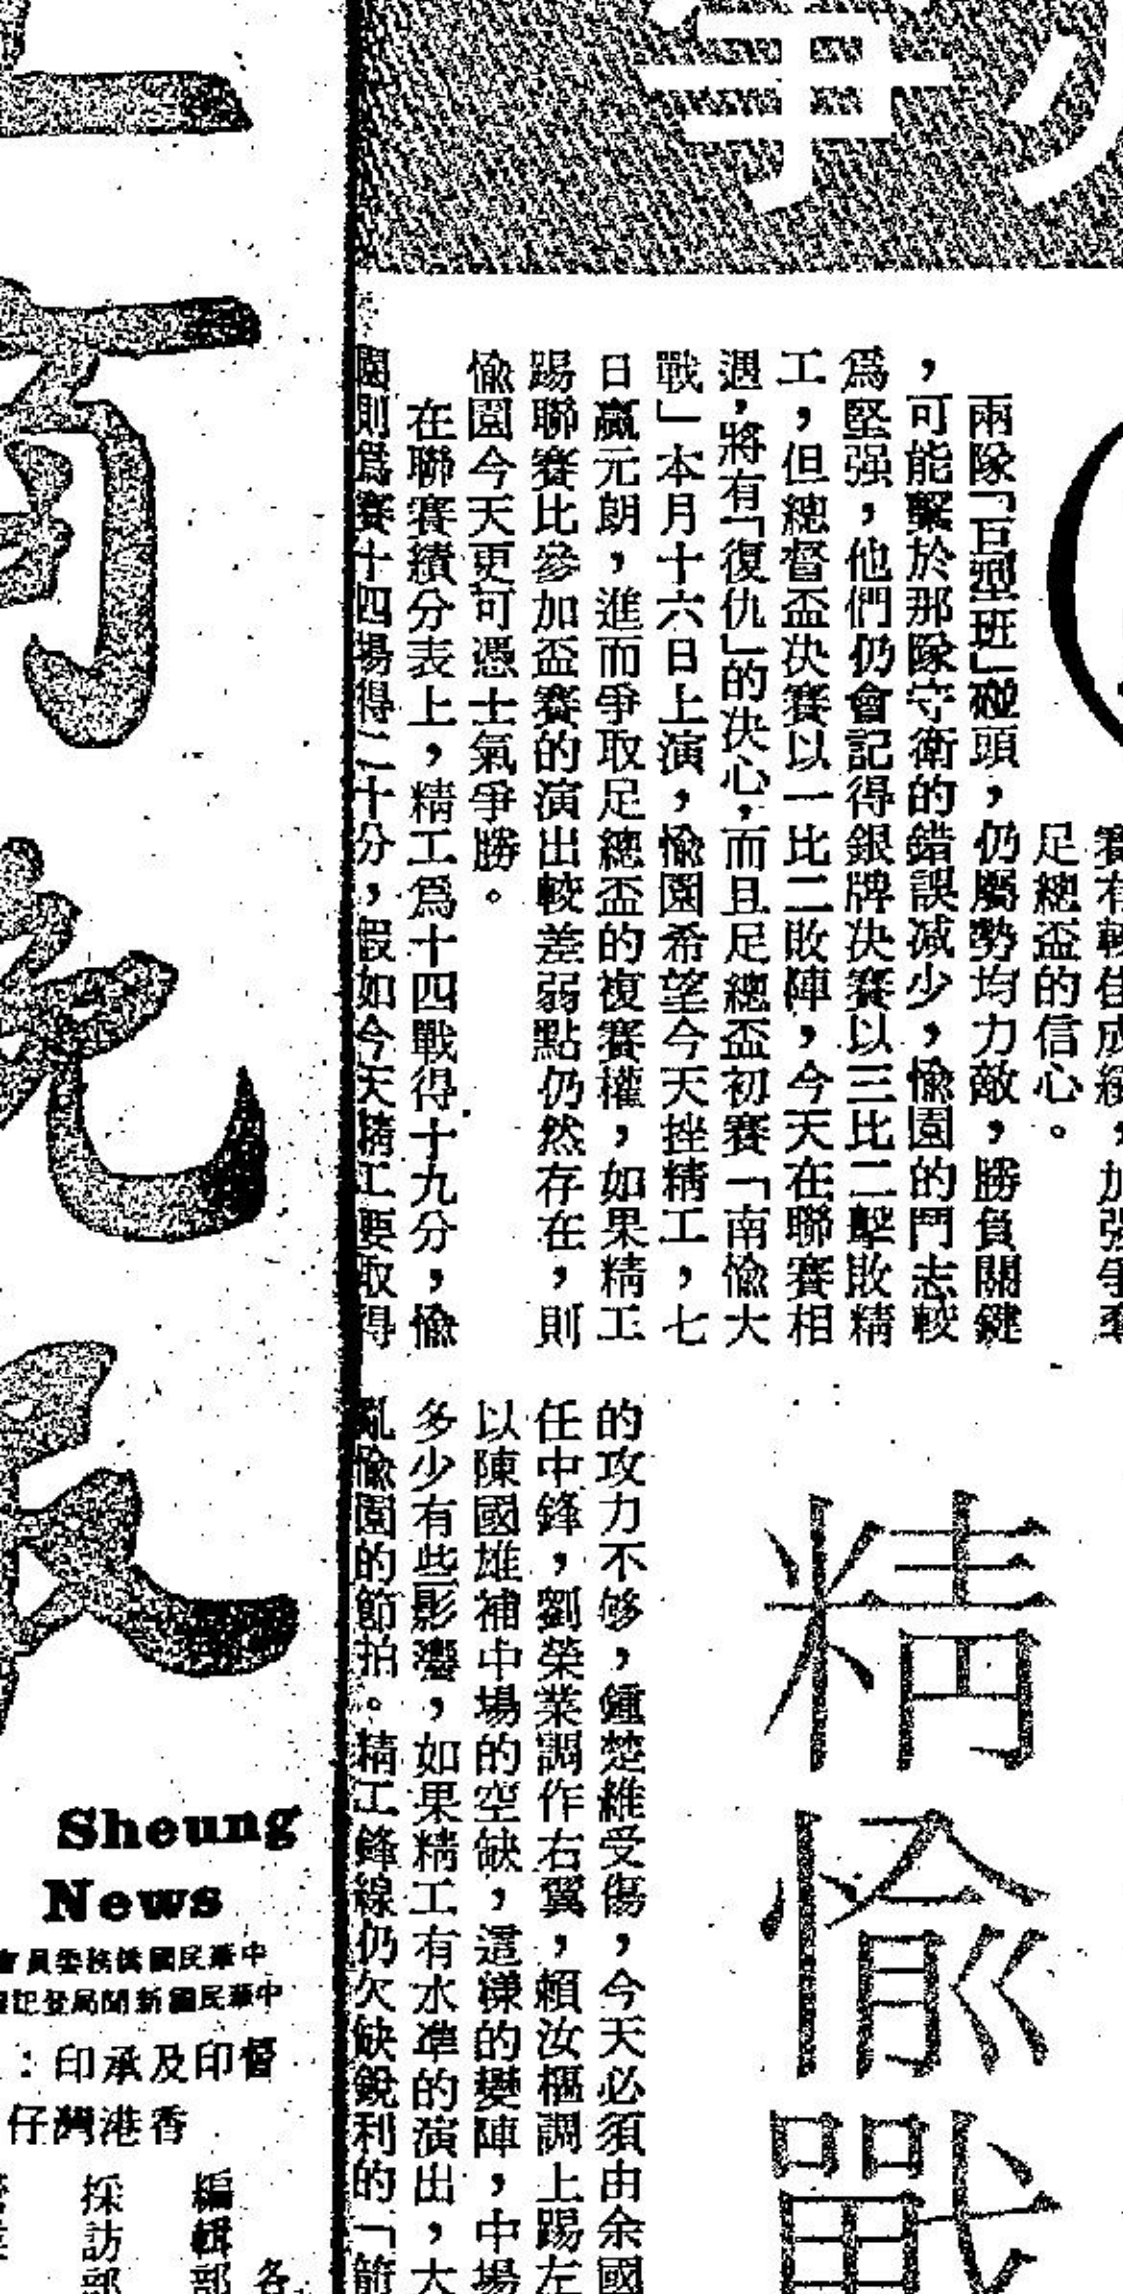 爭
賽有較佳成績，加强爭奪
足總盃的信心。
兩隊「巨型班」碰頭，仍屬勢均力敵，勝負關鍵
，可能繫於那隊守衛的錯誤减少，愉園的鬥志較
爲堅强，他們仍會記得銀牌决賽以三比二擊敗精
工，但總督盃决賽以一比二敗陣，今天在聯賽相
遇，將有「復仇」的决心，而且足總盃初賽「南愉大
戰」本月十六日上演，愉園希望今天挫精工，七
日贏元朗，進而爭取足總盃的複賽權，如果精工
踢聯賽比參加盃賽的演出較差弱點仍然存在，則
愉園今天更可憑士氣爭勝。
在聯賽績分表上，精工爲十四戰得十九分，愉
園則爲賽十四場得二十分，假如今天精工要取得
精愉戰
的攻力不够，鍾楚維受傷，今天必須由余國
任中鋒，劉榮業調作右翼，賴汝樞調上踢左
以陳國雄補中場的空缺，這樣的變陣，中場
多少有些影響，如果精工有水準的演出，大
亂愉園的節拍。精工鋒線仍欠缺銳利的「箭
Sheung
News
中華民國僑務委員會
中華民國新聞局登記
督印及承印：
香港灣仔
編輯部
採訪部
各